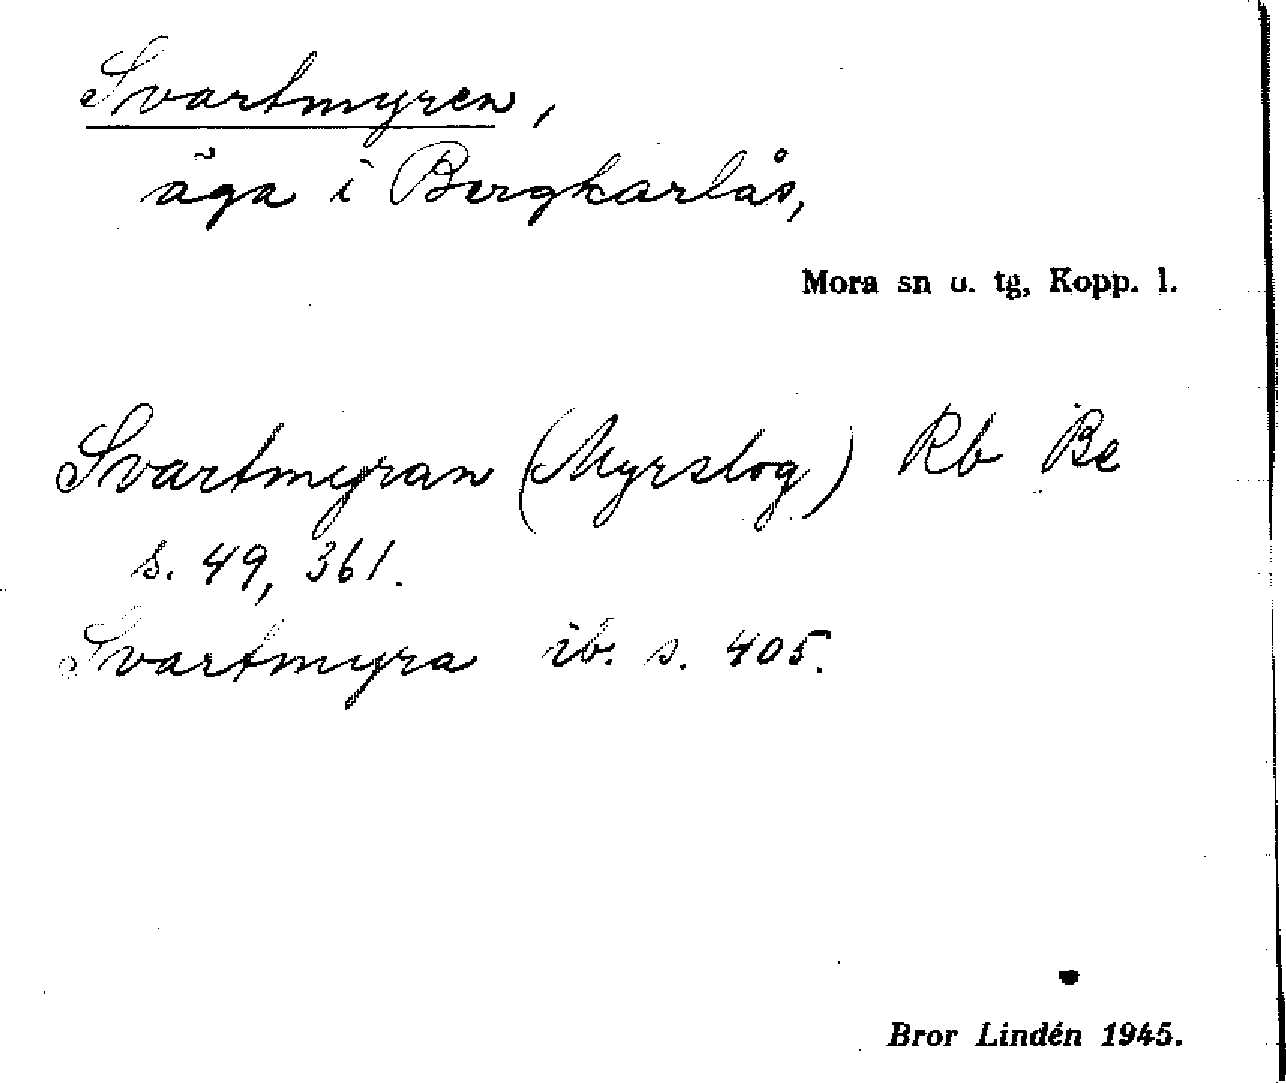 Svartmyren,
äga i Bergkarlås,
Mora sn u. tg, Kopp. l.
Svartmyran (Myrslog) Rb Be
s. 49, 361.
Svartmyra ib. s. 405.
Bror Lindén 1945.